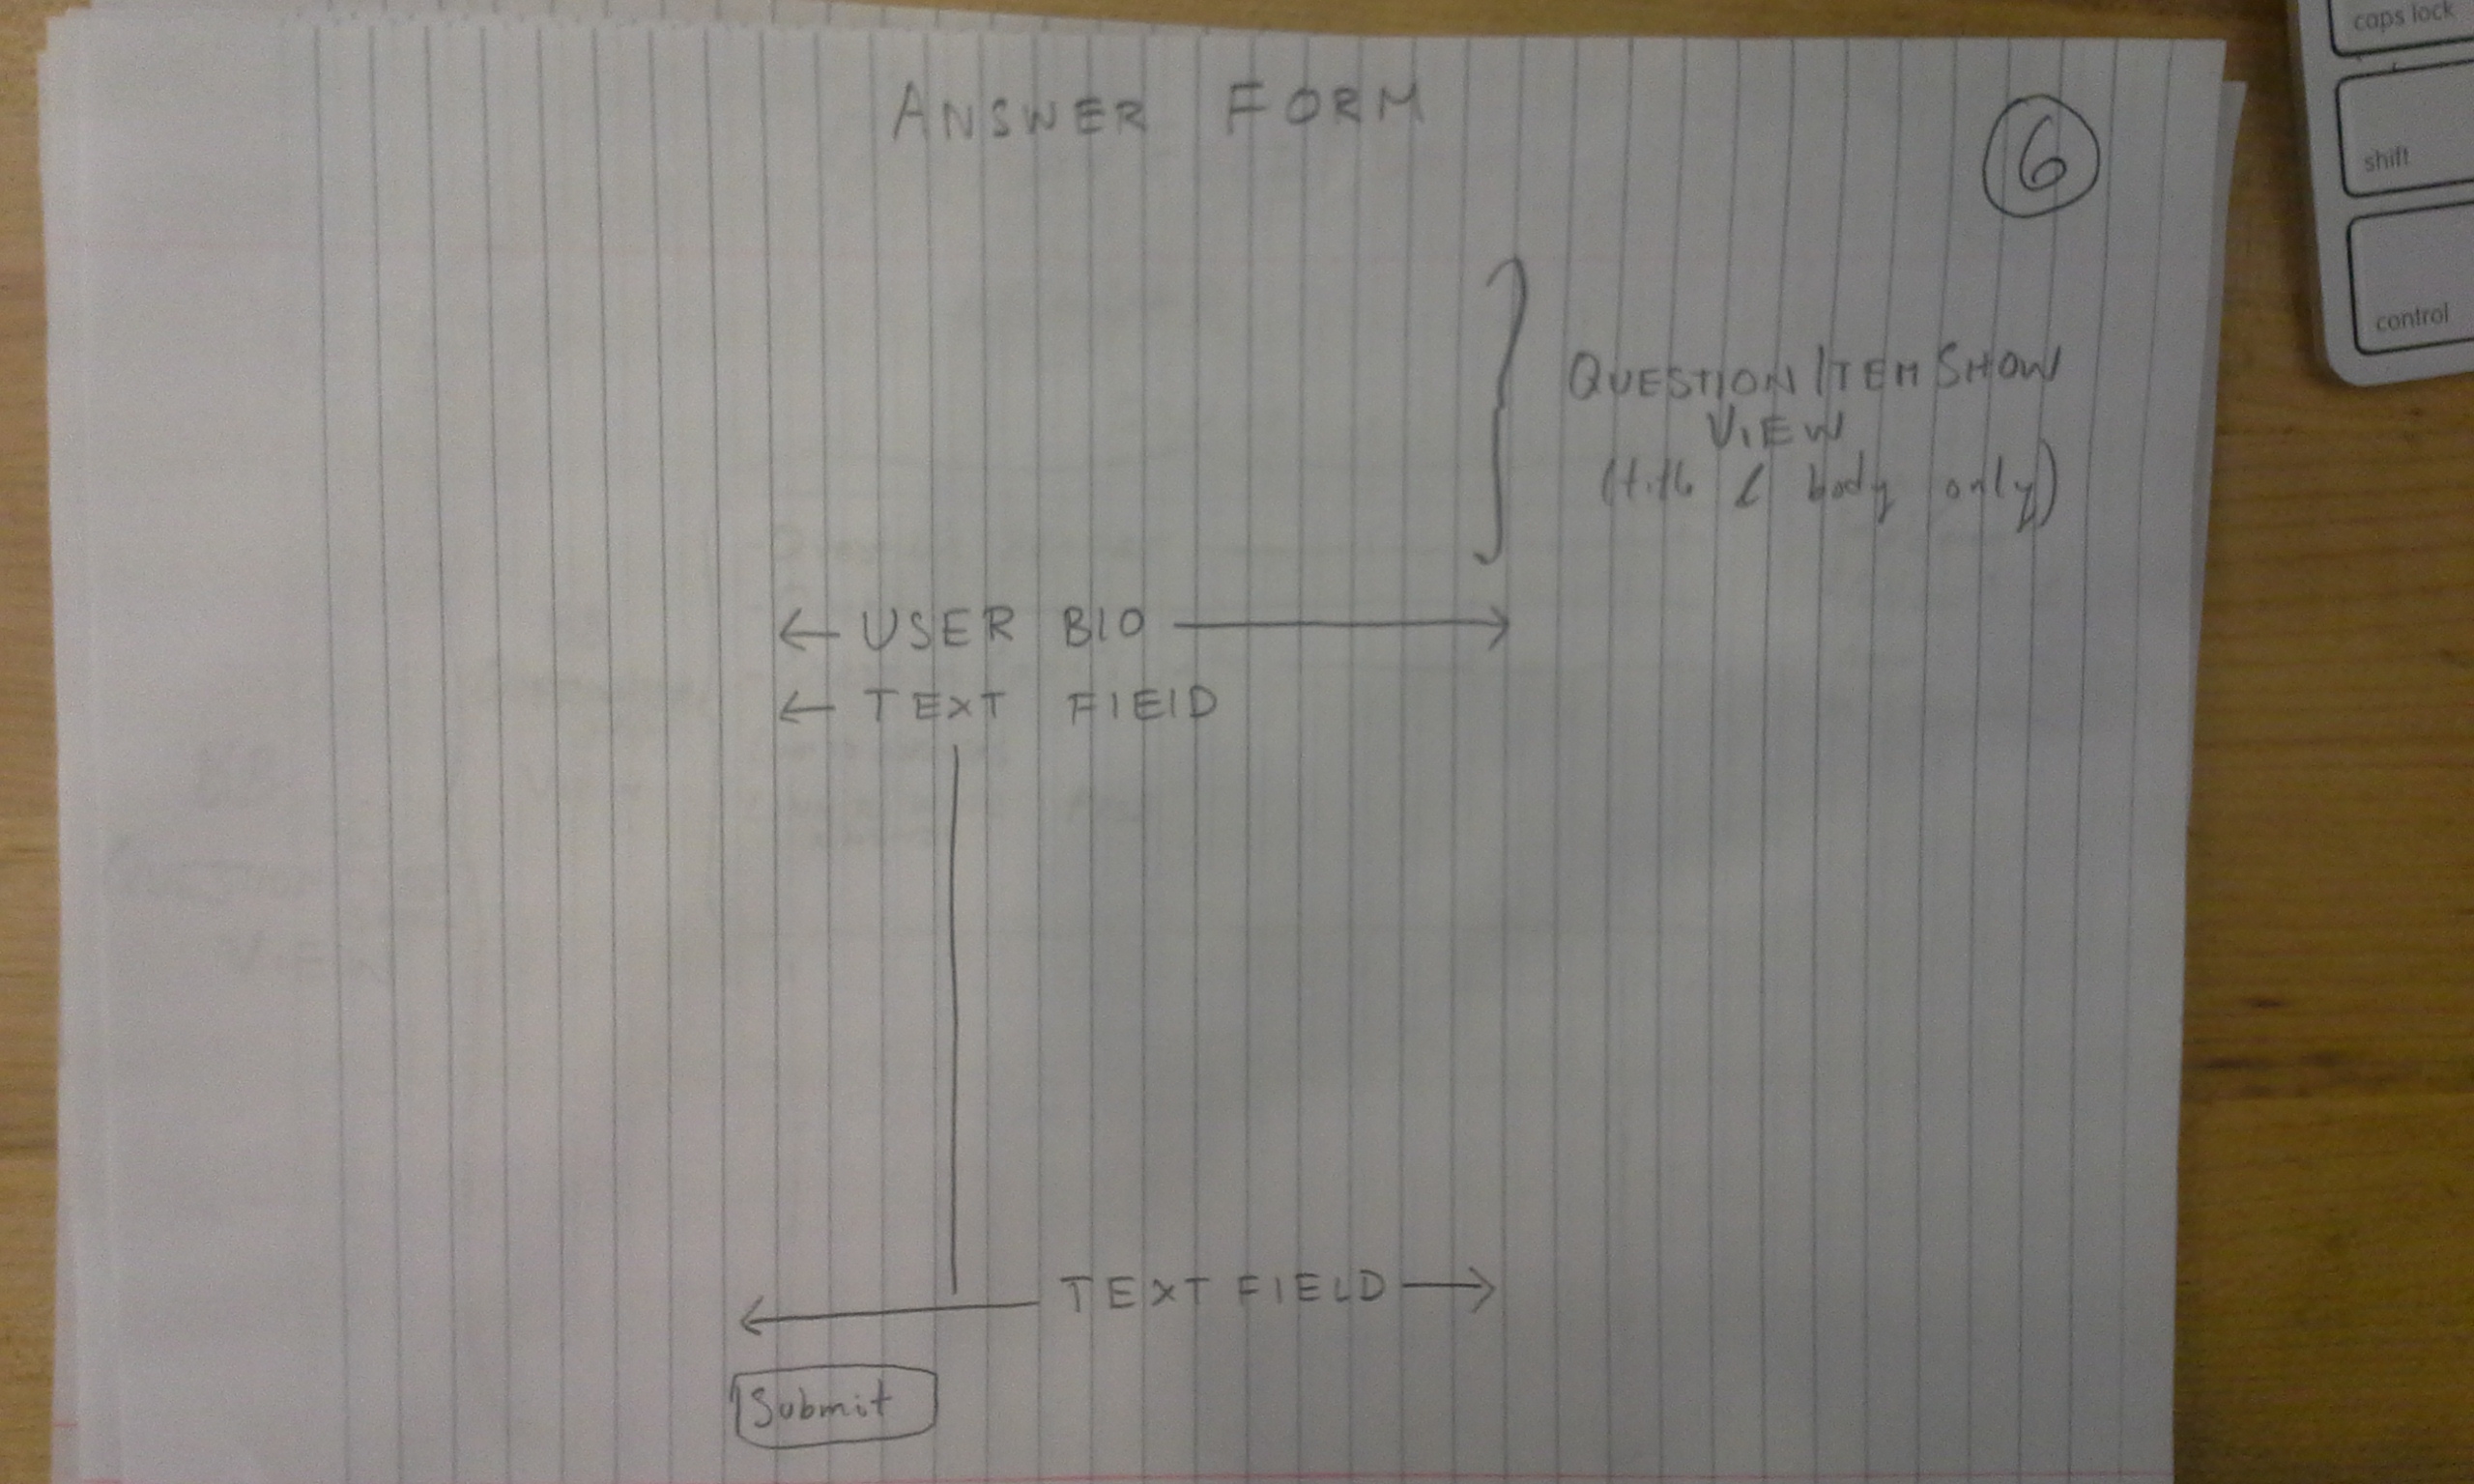 ANSWER FORM
6
QUESTIONITEMSHOW
VIEW
(title & body only)
← USER BIO →
← TEXT FIELD
← TEXT FIELD →
Submit
caps lock
shift
control